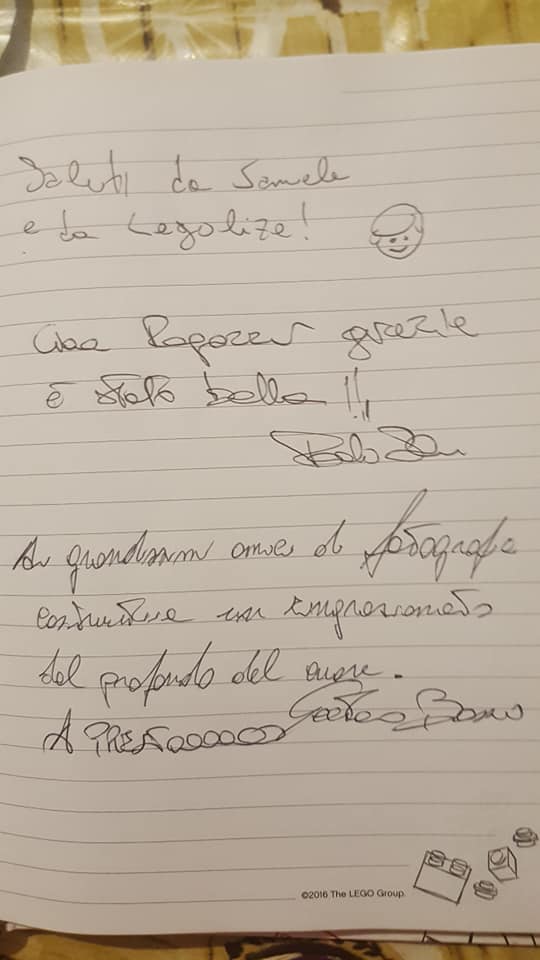 Saluti da Samuele
e da Legolize!
Ciao Ragazzi grazie
è stato bello!!
Ai grandissimi amici di fotografie
costruttive un ringraziamento
dal profondo del cuore.
A PRESTOOOOOO
©2016 The LEGO Group.